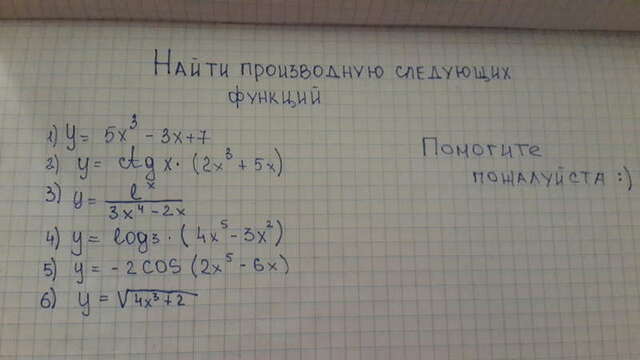 Найти производную следующих
функций
1) y = 5x³ - 3x + 7
2) y = ctg x · (2x³ + 5x)
3) y = eˣ / (3x⁴ - 2x)
4) y = log₃ · (4x⁵ - 3x²)
5) y = - 2 cos (2x⁵ - 6x)
6) y = √(4x³ + 2)
Помогите
пожалуйста :)